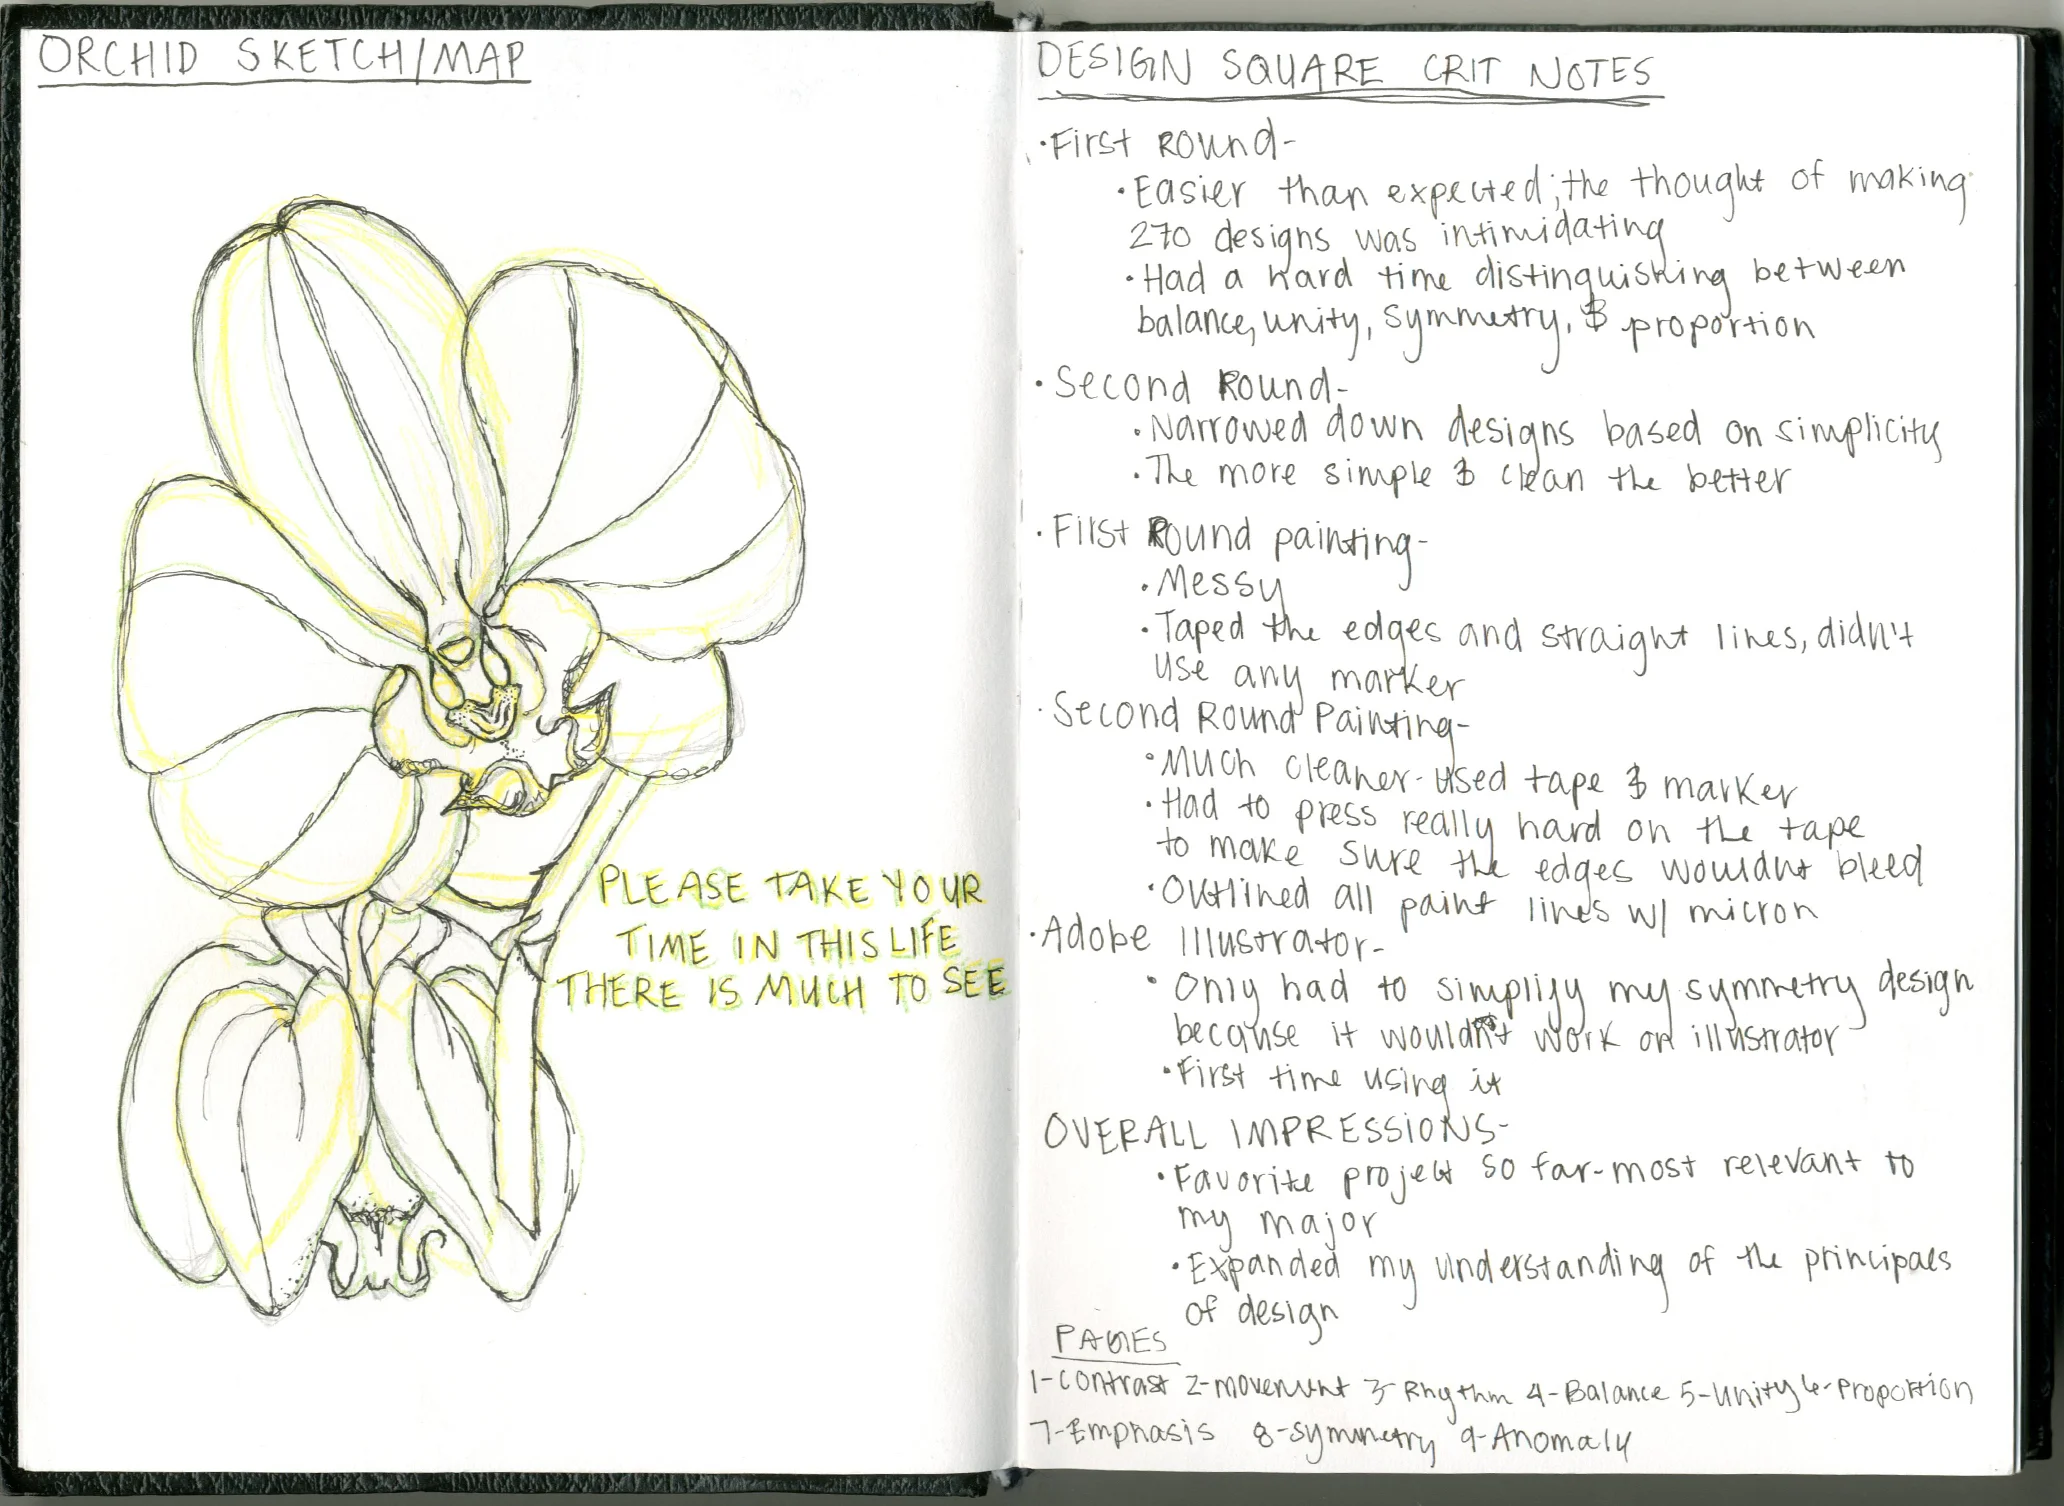 ORCHID SKETCH/MAP
PLEASE TAKE YOUR
TIME IN THIS LIFE
THERE IS MUCH TO SEE
DESIGN SQUARE CRIT NOTES
·First Round-
·Easier than expected; the thought of making
270 designs was intimidating
·Had a hard time distinguishing between
balance, unity, symmetry, & proportion
·Second Round-
·Narrowed down designs based on simplicity
·The more simple & clean the better
·First Round painting-
·Messy
·Taped the edges and straight lines, didn't
use any marker
·Second Round Painting-
·Much cleaner-used tape & marker
·Had to press really hard on the tape
to make sure the edges wouldnt bleed
·Outlined all paint lines w/ micron
·Adobe Illustrator-
·Only had to simplify my symmetry design
because it wouldn't work on illustrator
·First time using it
OVERALL IMPRESSIONS-
·Favorite project so far-most relevant to
my major
·Expanded my understanding of the principaes
of design
PAGES
1-Contrast 2-movement 3-Rhythm 4-Balance 5-Unity 6-Proportion
7-Emphasis 8-symmetry 9-Anomaly